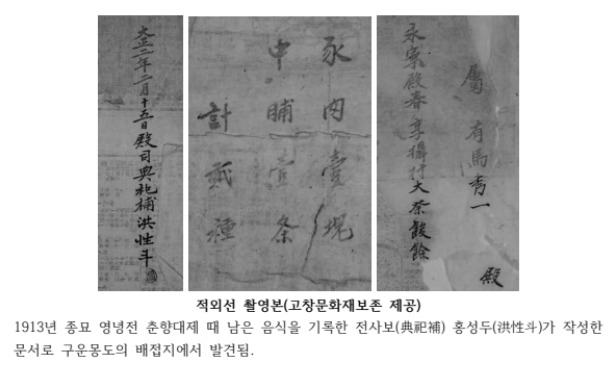 屬 有馬秀一 殿
永寧殿春享攝行大祭餕餘
豕肉壹塊
中脯壹条
計貳種
大正二年二月十五日殿司典祀補洪性斗
적외선 촬영본(고창문화재보존 제공)
1913년 종묘 영녕전 춘향대제 때 남은 음식을 기록한 전사보(典祀補) 홍성두(洪性斗)가 작성한
문서로 구운몽도의 배접지에서 발견됨.